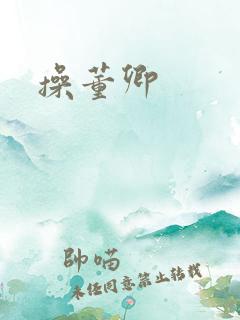 操董卿
帅喵
未经同意禁止转载